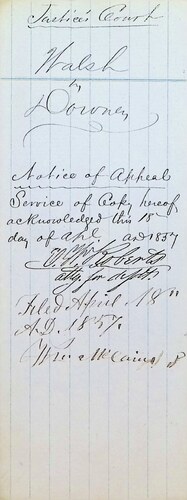 Justice's Court
Walsh
vs
Downey
Notice of Appeal
Service of Copy hereof
acknowledged this 18
day of Apl. A.D. 1857
Roberts
atty. for deft.
Filed April 18"
A.D. 1857.